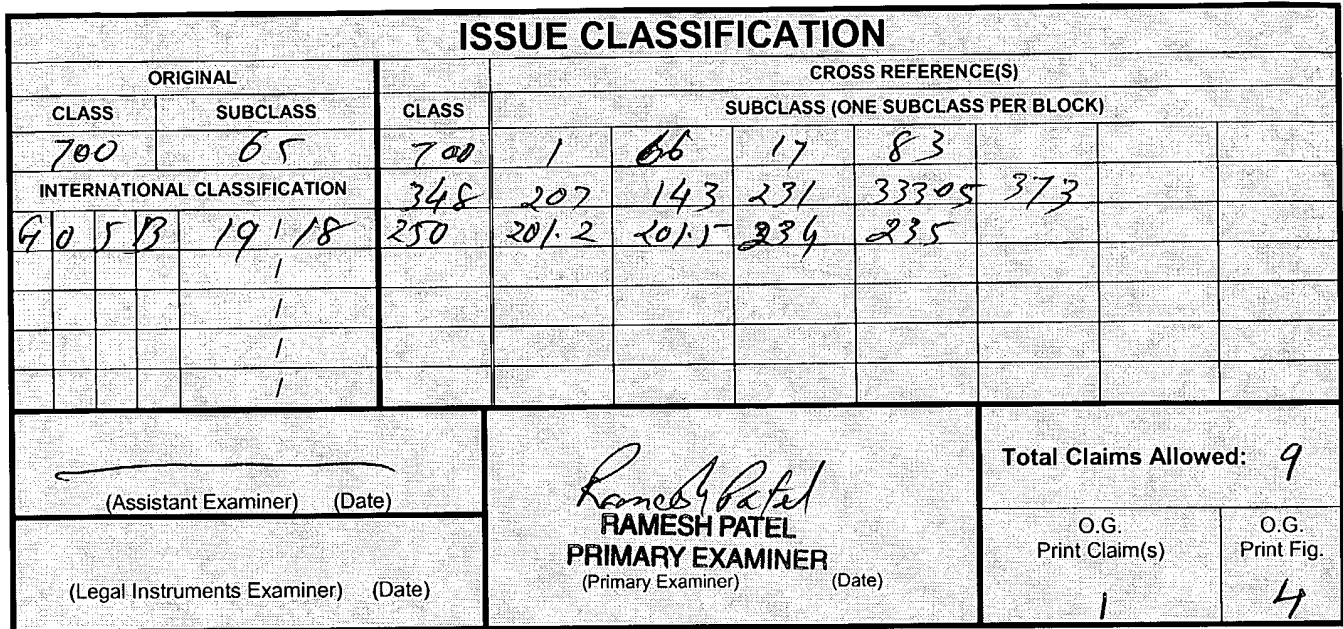 ISSUE CLASSIFICATION
ORIGINAL CROSS REFERENCE(S)
CLASS SUBCLASS CLASS SUBCLASS (ONE SUBCLASS PER BLOCK)
700 65 700 1 66 17 83
INTERNATIONAL CLASSIFICATION 348 207 143 231 33305 373
G 0 5 B 19 / 18 250 201.2 201.5 234 235
/
/
/
/
(Assistant Examiner) (Date)
Ramesh Patel
RAMESH PATEL
PRIMARY EXAMINER
(Primary Examiner) (Date)
Total Claims Allowed: 9
(Legal Instruments Examiner) (Date)
O.G. Print Claim(s)
1
O.G. Print Fig.
4